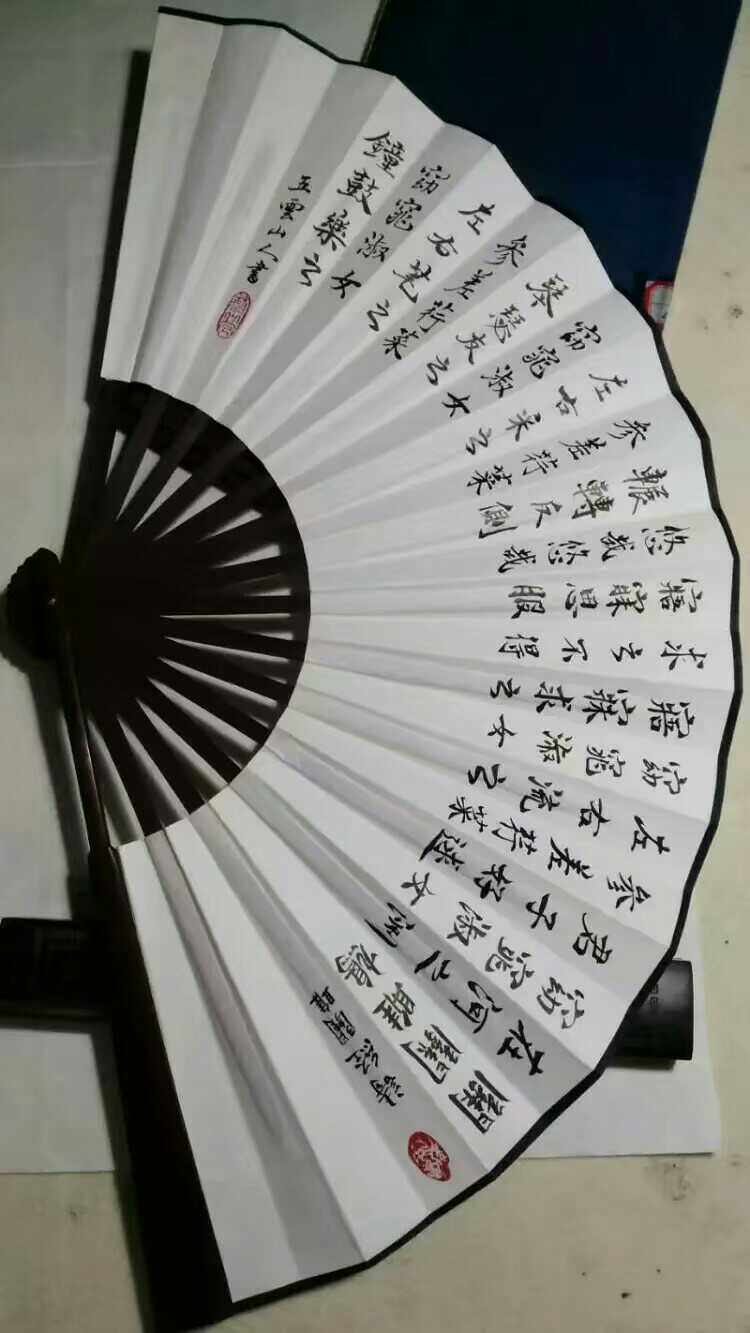 詩經關雎
關關雎鳩
在河之洲
窈窕淑女
君子好逑
參差荇菜
左右流之
窈窕淑女
寤寐求之
求之不得
寤寐思服
悠哉悠哉
輾轉反側
參差荇菜
左右采之
窈窕淑女
琴瑟友之
參差荇菜
左右芼之
窈窕淑女
鐘鼓樂之
五雲山人書